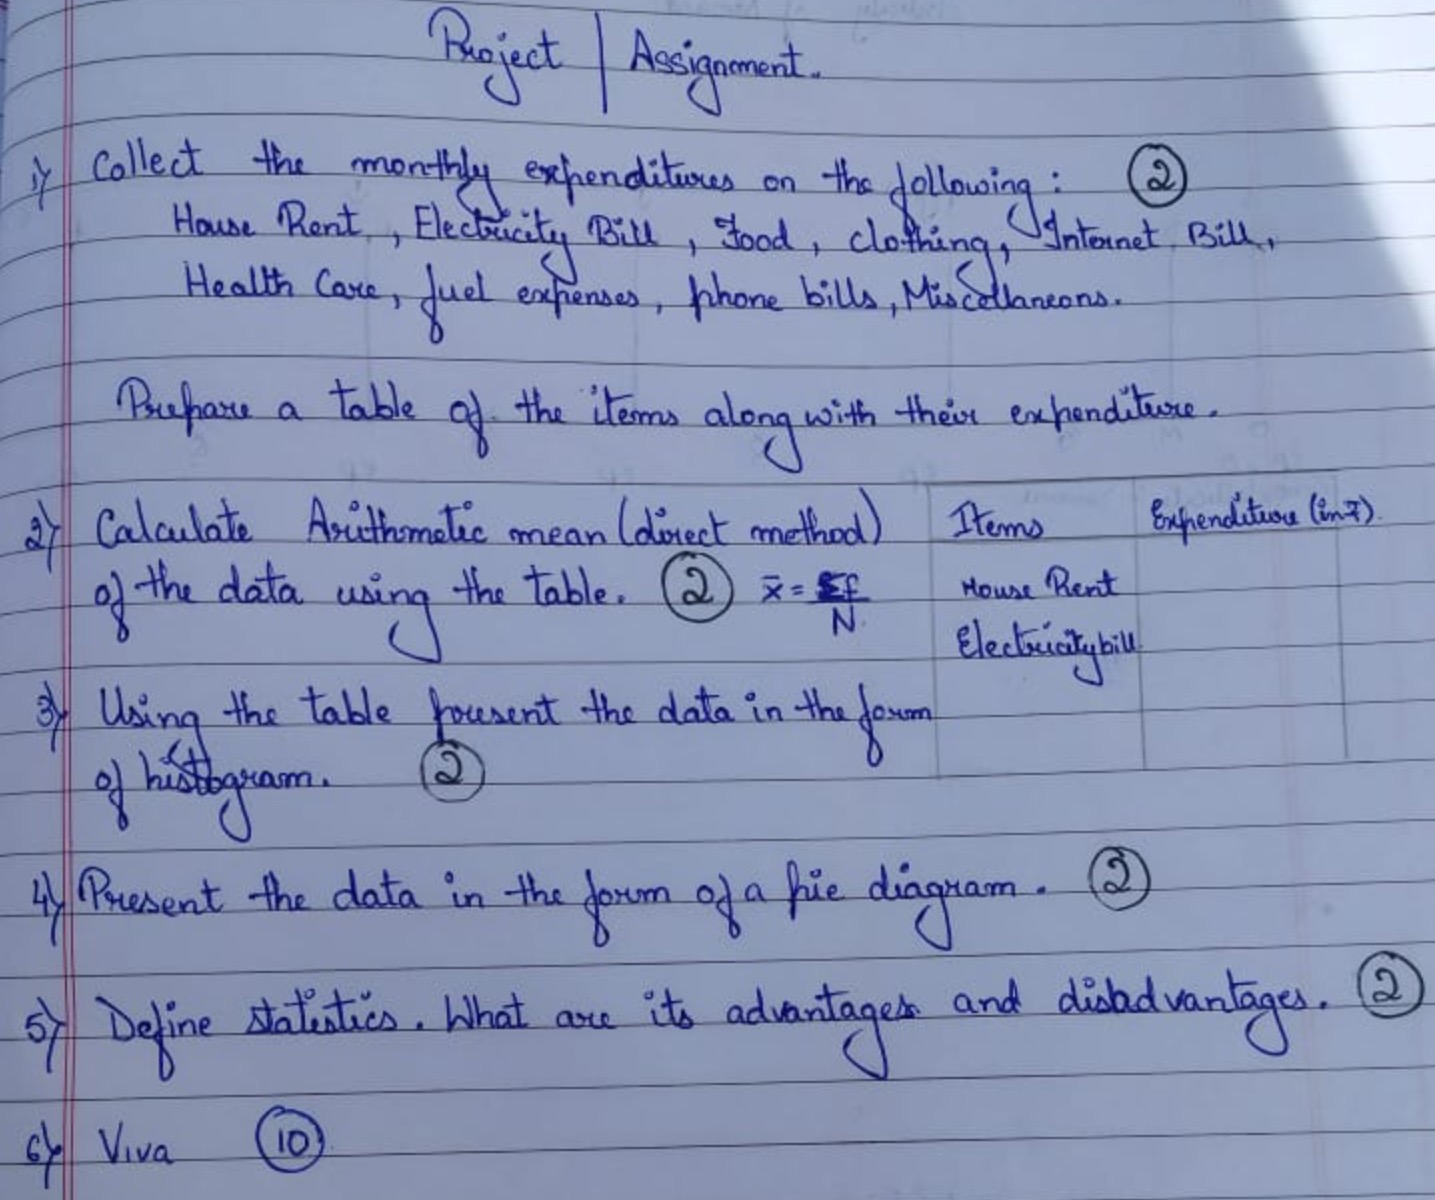 Project | Assignment.
1) Collect the monthly expenditures on the following : 2
House Rent, Electricity Bill, Food, clothing, Internet Bill,
Health Care, fuel expenses, phone bills, Miscellaneous.
Prepare a table of the items along with their expenditure.
2) Calculate Arithmetic mean (direct method)
of the data using the table. 2 x̄ = Σf/N
Items Expenditure (in ₹).
House Rent
Electricity bill
3) Using the table present the data in the form
of histogram. 2
4) Present the data in the form of a pie diagram. 2
5) Define statistics. What are its advantages and disadvantages. 2
6) Viva 10